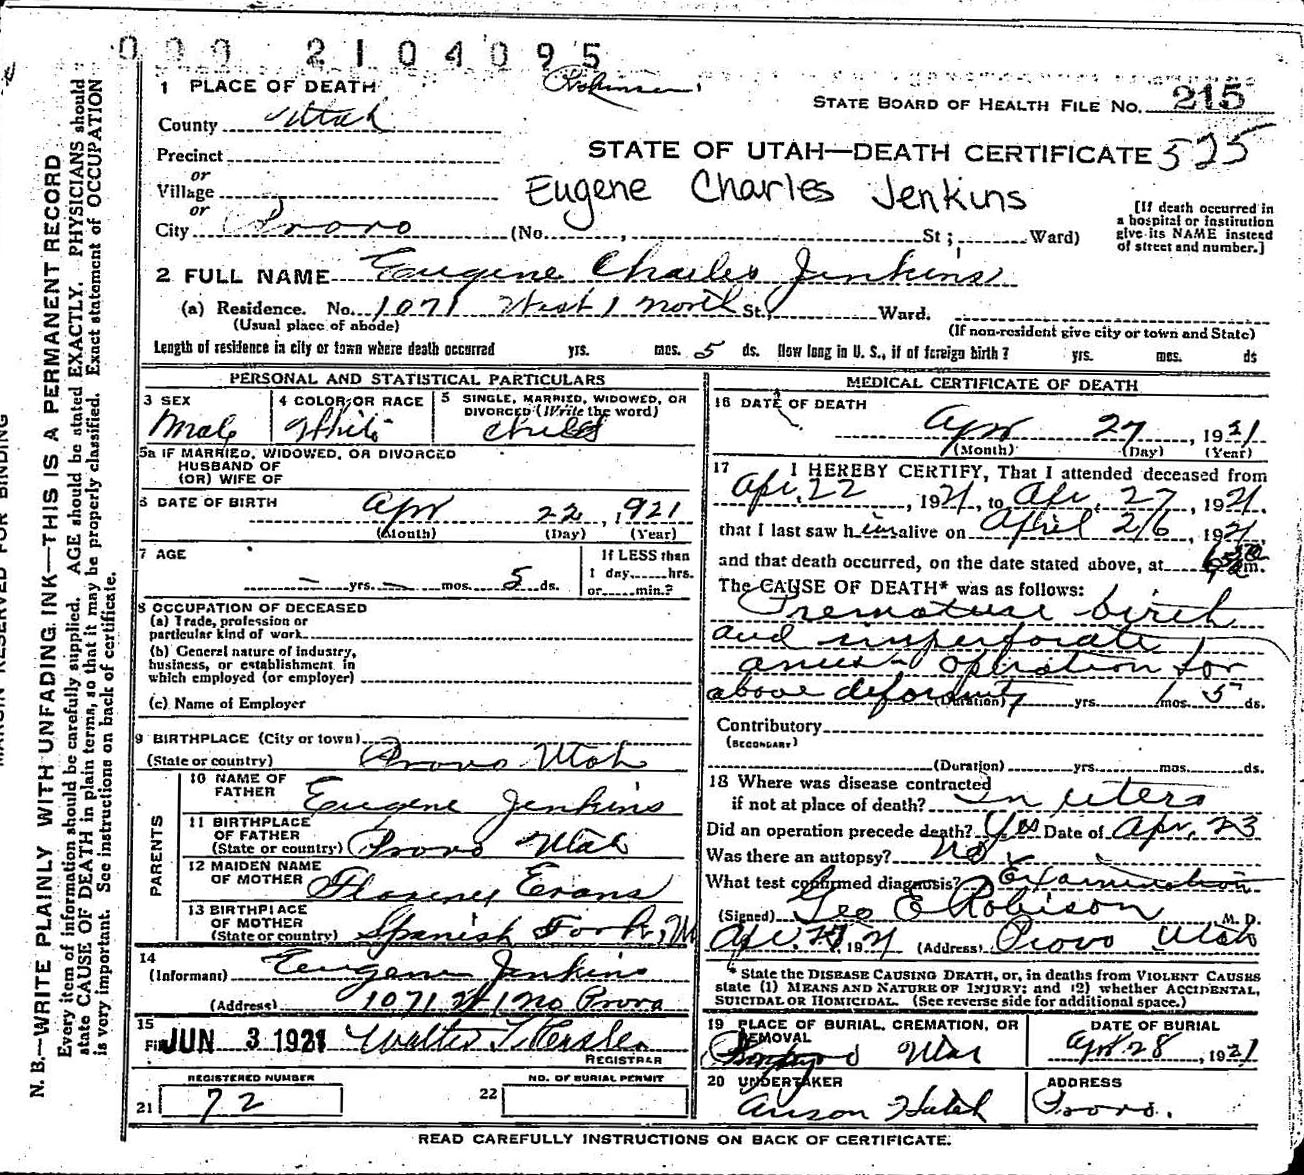 000 2104095
1 PLACE OF DEATH
STATE BOARD OF HEALTH FILE NO. 215
County Utah
STATE OF UTAH—DEATH CERTIFICATE 525
Precinct
or
Village
Eugene Charles Jenkins
or
City Provo (No. , St ; Ward)
[If death occurred in
a hospital or institution
give its NAME instead
of street and number.]
2 FULL NAME Eugene Charles Jenkins
(a) Residence. No. 1071 West 1 north St., Ward.
(Usual place of abode) (If non-resident give city or town and State)
Length of residence in city or town where death occurred yrs. mos. 5 ds. How long in U. S., if of foreign birth? yrs. mos. ds
PERSONAL AND STATISTICAL PARTICULARS
3 SEX 4 COLOR OR RACE 5 SINGLE, MARRIED, WIDOWED, OR
DIVORCED (Write the word)
Male White child
5a IF MARRIED, WIDOWED, OR DIVORCED
HUSBAND OF
(OR) WIFE OF
6 DATE OF BIRTH Apr 22, 1921
(Month) (Day) (Year)
7 AGE If LESS than
— yrs. — mos. 5 ds. 1 day, hrs.
or min.?
8 OCCUPATION OF DECEASED
(a) Trade, profession or
particular kind of work
(b) General nature of industry,
business, or establishment in
which employed (or employer)
(c) Name of Employer
9 BIRTHPLACE (City or town)
(State or country) Provo Utah
PARENTS
10 NAME OF
FATHER Eugene Jenkins
11 BIRTHPLACE
OF FATHER
(State or country) Provo Utah
12 MAIDEN NAME
OF MOTHER Florence Evans
13 BIRTHPLACE
OF MOTHER
(State or country) Spanish Fork, Ut
14
(Informant) Eugene Jenkins
(Address) 1071 W 1 no Provo
15
JUN 3 1921 Walter T.
REGISTRAR
REGISTERED NUMBER NO. OF BURIAL PERMIT
21 72 22
MEDICAL CERTIFICATE OF DEATH
16 DATE OF DEATH
Apr 27, 1921
(Month) (Day) (Year)
17 I HEREBY CERTIFY, That I attended deceased from
Apr. 22, 1921, to Apr. 27, 1921.
that I last saw him alive on April 26, 1921,
and that death occurred, on the date stated above, at m.
The CAUSE OF DEATH* was as follows:
Premature birth
and imperforate
anus - operation for
above deformity (Duration) yrs. mos. 5 ds.
Contributory
(SECONDARY)
(Duration) yrs. mos. ds.
18 Where was disease contracted
if not at place of death? In utero
Did an operation precede death? Yes Date of Apr. 23
Was there an autopsy? No
What test confirmed diagnosis? Examination
(Signed) Geo E Robison M. D.
Apr. 27, 1921 (Address) Provo Utah
* State the DISEASE CAUSING DEATH, or, in deaths from VIOLENT CAUSES
state (1) MEANS AND NATURE OF INJURY; and (2) whether ACCIDENTAL,
SUICIDAL OR HOMICIDAL. (See reverse side for additional space.)
19 PLACE OF BURIAL, CREMATION, OR
REMOVAL DATE OF BURIAL
Apr 28, 1921
20 UNDERTAKER ADDRESS
Anson Hatch Provo.
READ CAREFULLY INSTRUCTIONS ON BACK OF CERTIFICATE.
MARGIN RESERVED FOR BINDING
N. B.—WRITE PLAINLY WITH UNFADING INK—THIS IS A PERMANENT RECORD
Every item of information should be carefully supplied. AGE should be stated EXACTLY. PHYSICIANS should
state CAUSE OF DEATH in plain terms, so that it may be properly classified. Exact statement of OCCUPATION
is very important. See instructions on back of certificate.